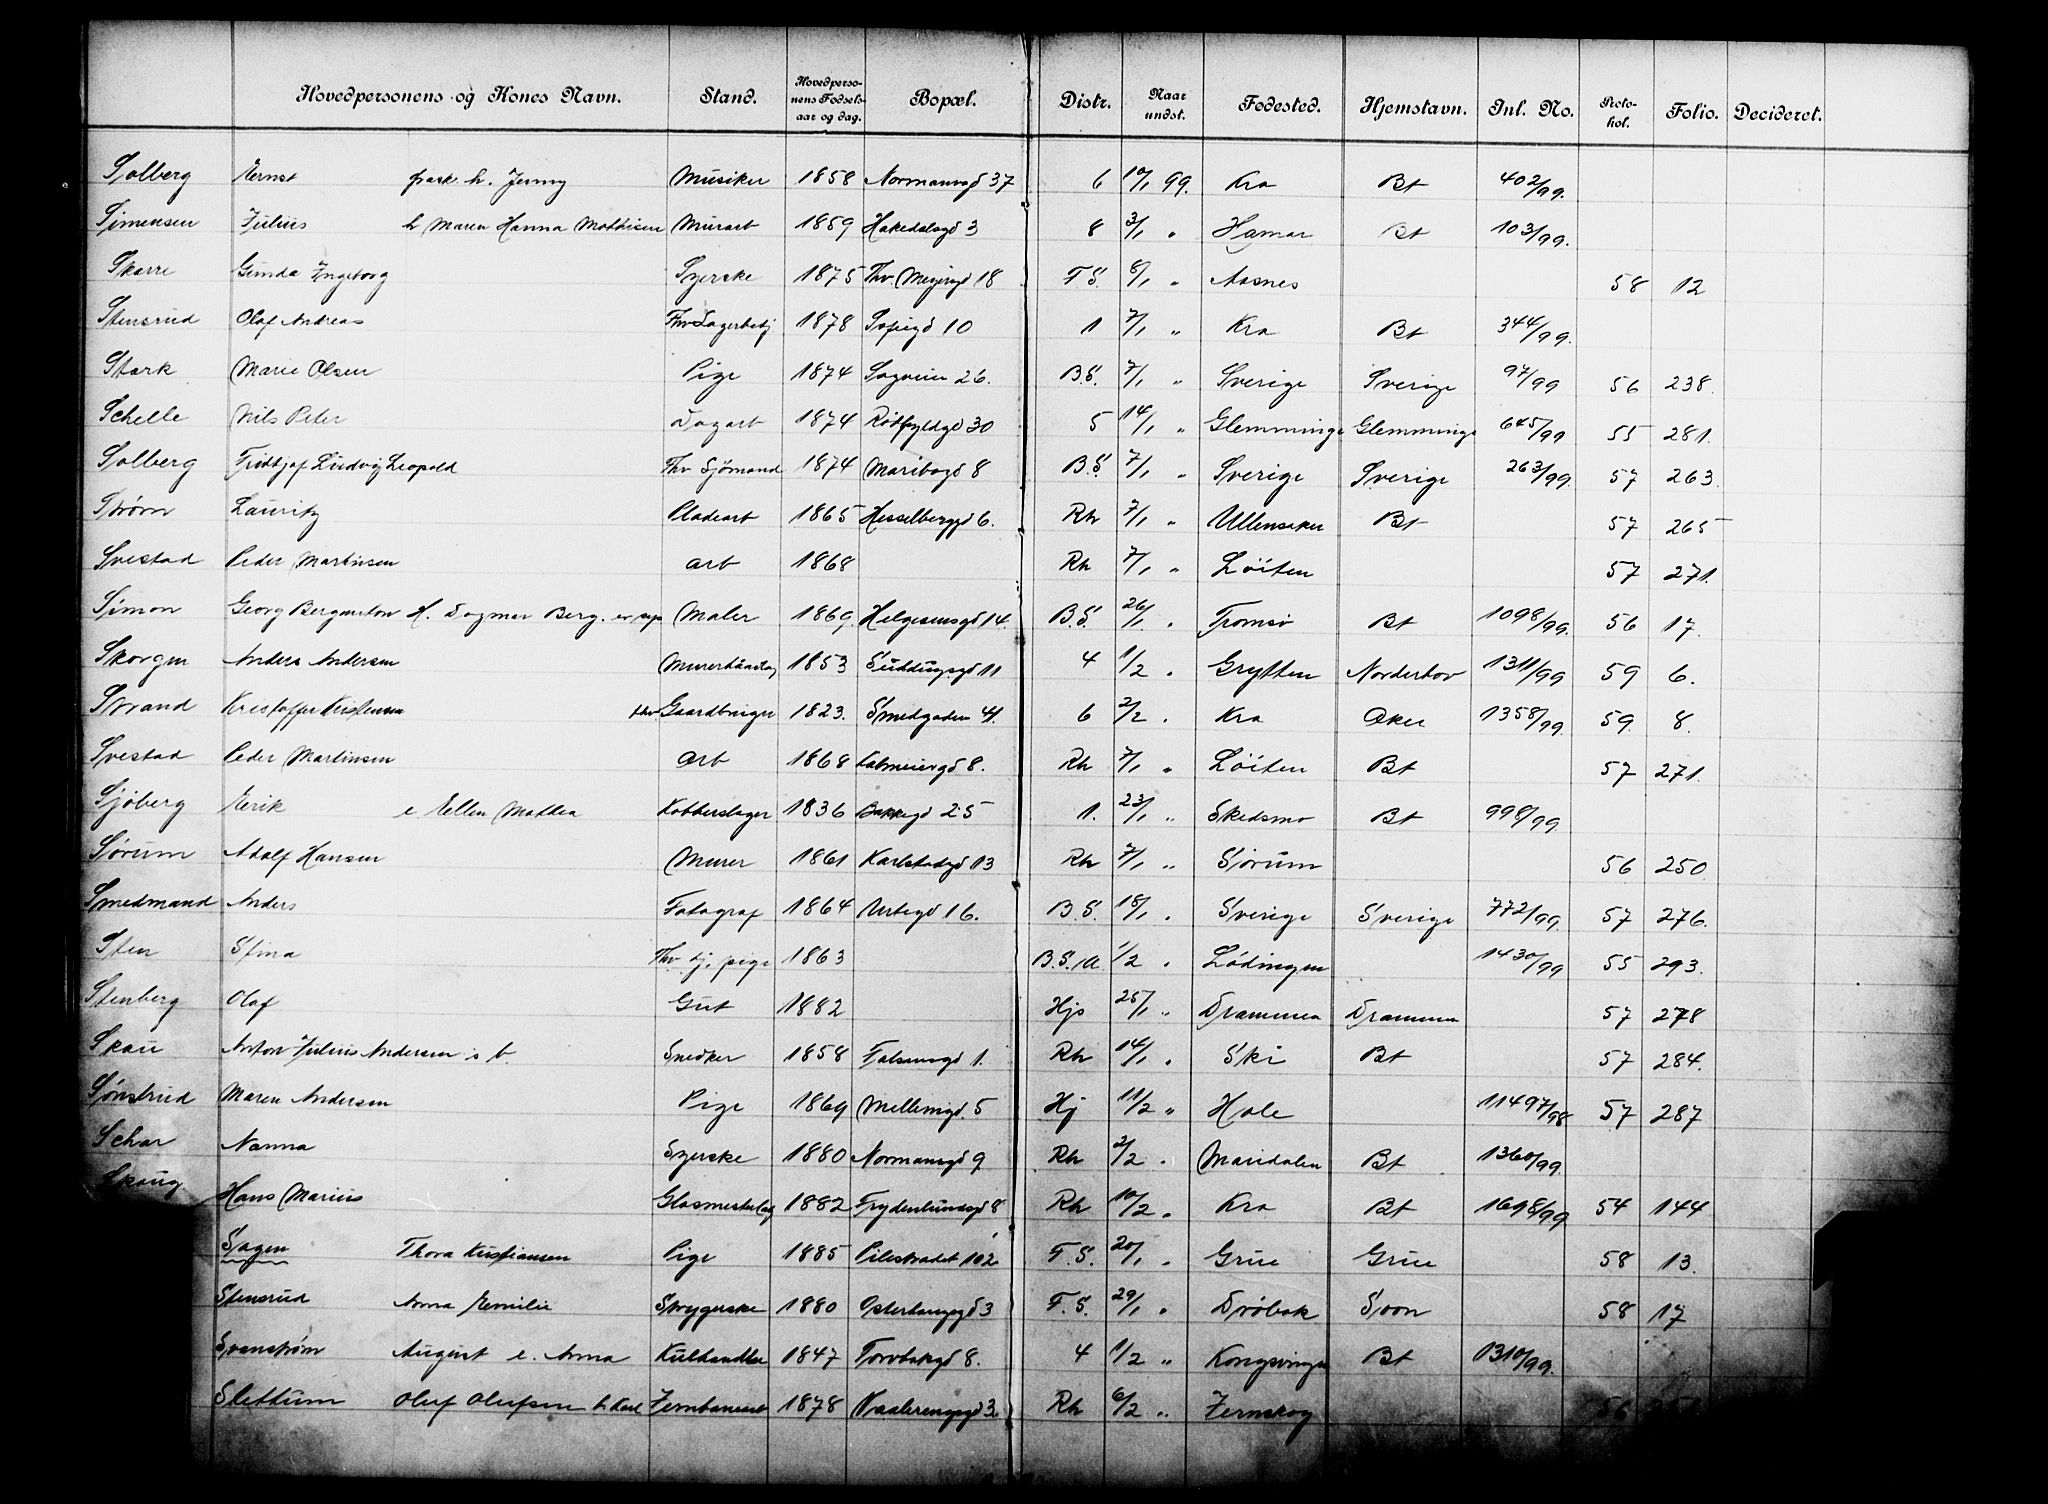 Hovedpersonens og Kones Navn. Stand. Hovedpersonens Fødselsaar og dag. Bopæl. Distr. Naar undst. Fødested. Hjemstavn. Inl. No. Protokol. Folio. Decideret.
Solberg Ernst frask. h. Jenny Musiker 1858 Normannsgd 37 6 10/1 99. Kra Bt 402/99.
Simensen Julius h Maren Hanna Mathisen Murarb 1859 Hakedalsgd 3 8 3/1 " Hamar Bt 103/99.
Skarre Gunda Ingeborg Syerske 1875 Thv. Meyersgd 18 F S. 8/1 " Aasnes 58 12
Stensrud Olaf Andreas Fhv Lagerbetj 1878 Sofiegd 10 1 7/1 " Kra Bt 344/99.
Stark Marie Olsen Pige 1874 Sagveien 26. B.S. 7/1 " Sverige Sverige 97/99 56 238.
Schelle Nils Peter Dagarb 1874 Rödfyldgd 30 5 14/1 " Glemminge Glemminge 645/99 55 281.
Solberg Fridtjof Ludvig Leopold Fhv Sjömand 1874 Maribogd 8 B.S. 7/1 " Sverige Sverige 263/99. 57 263.
Strøm Lauritz Pladearb 1865 Hesselberggd 6. Rh 7/1 " Ullensaker Bt 57 265
Svestad Peder Martinsen arb 1868 Rh 7/1 " Löiten 57 271.
Simon Georg Berganton H. Dagmar Berg. er sep Maler 1869. Helgesensgd 14. B.S. 26/1 . Tromsö Bt 1098/99. 56 17.
Skorgen Anders Andersen Murerhaandlg 1853 Suhdugsgd 11 4 1/2 . Grytten Norderhov 1311/99 59 6.
Strand Kristoffer Kristensen fhv Gaardbruger 1823. Smedgaden 41. 6 2/2 . Kra Aker 1358/99. 59. 8.
Svestad Peder Martinsen Arb 1868 Labmeiergd 8. Rh 7/1 " Löiten Bt 57 271.
Sjöberg Eerik e Eellen Mathea Kobberslager 1836 Bakkegd 25 1. 23/1 " Skedsmo Bt 998/99.
Sörum Adolf Hansen Murer 1861 Karlstadgd 13 Rh 7/1 " Sörum 56 250
Smedmand Anders Fotograf 1864 Urtegd 16. B.S. 18/1 . Sverige Sverige 772/99. 57 276.
Sten Stina Fhv tj. pige 1863 B.S.A. 1/2 . Lödingen 1430/99 55 293.
Stenberg Olaf Gut 1882 Hjs 25/1 " Drammen Drammen 57 278
Skau Anton Julius Andersen s. b. Snedker 1858 Falsensgd 1. Rh 14/1 . Ski Bt 57 284.
Sönstrud Maren Andersen Pige 1869 Mellemgd. 5 Hj 11/2 " Hole 11497/98 57 287
Schar Nanna Syerske 1880 Normansgd 9 Rh 2/2 . Maridalen Bt 1360/99.
Skaug Hans Marius Glasmesterlg 1882 Frydenlundsgd 8 Rh 10/2 " Kra Bt 1698/99 54 144
Sagen Thora Kristiansen Pige 1885 Pilestradet 102 F. S. 20/1 . Grue Grue 58 13.
Stensrud Anna Eemilie Strygerske 1880 Osterhausgd 3 F. S. 29/1 . Dröbak Soon 58 17
Svanstrøm August e. Anna Kulhandler 1847 Torvbakgd 8. 4 1/2 " Kongsvinger Bt 1310/99.
Slettum Oluf Olufsen h Karl Jernbanearb 1878 Vaalerenggd 3. Rh 6/2 " Jernskog 56